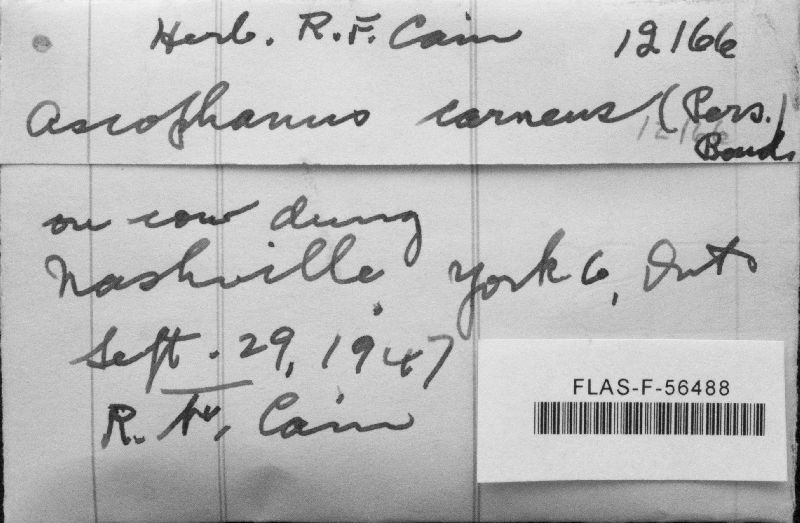 Herb. R.F. Cain 12166
Ascophanus carneus (Pers.)
12166
Boud.
on cow dung
Nashville, York Co, Ont.
Sept. 29, 1947
R. F. Cain
FLAS-F-56488